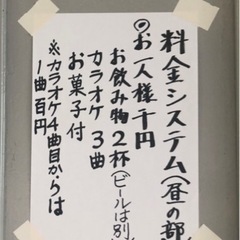 料金システム(昼の部
◎お一人様千円
お飲み物2杯(ビールは別
カラオケ3曲
お菓子付
※カラオケ4曲目からは
1曲百円